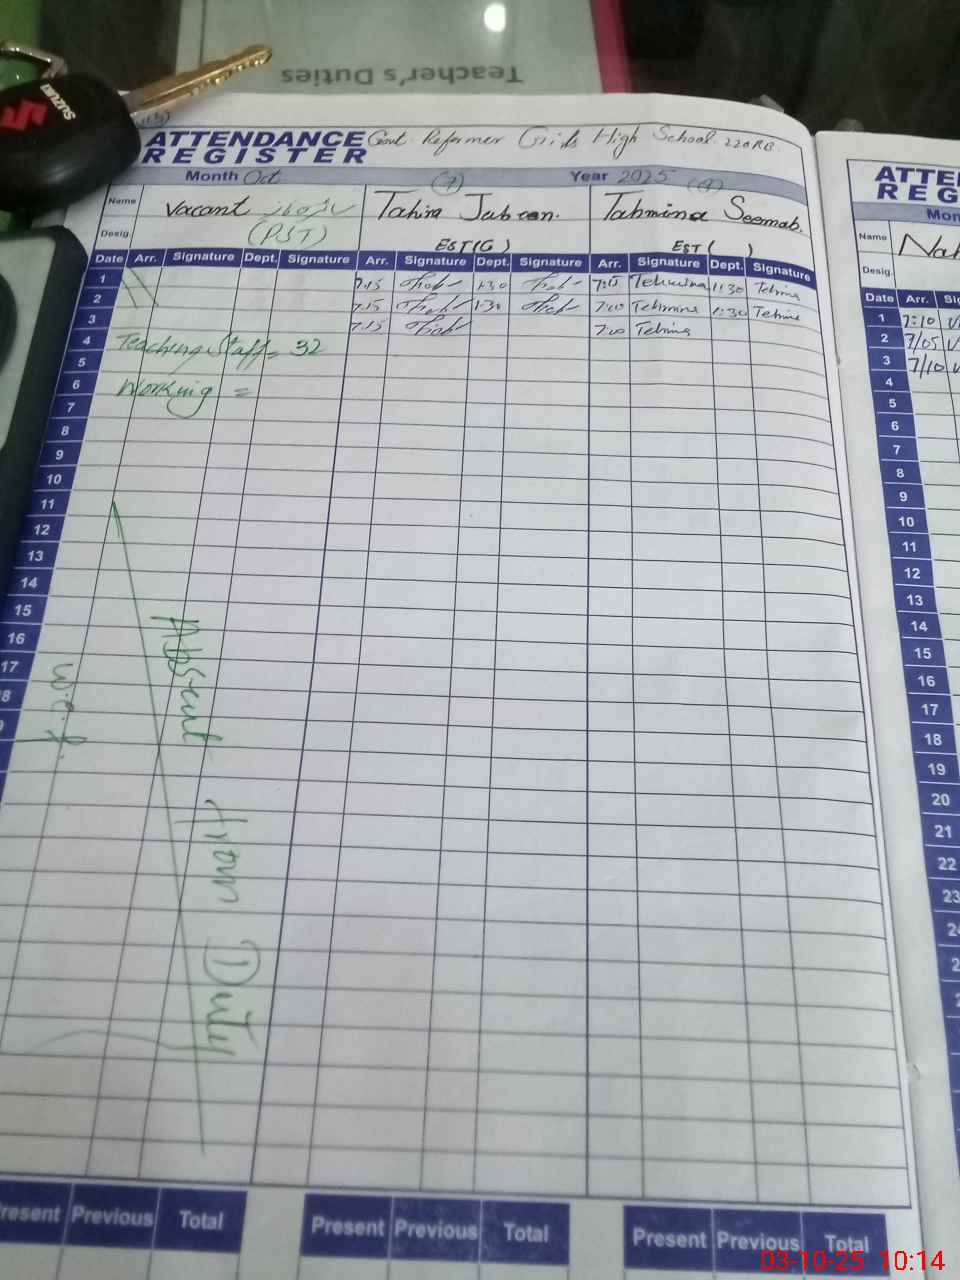 Teacher's Duties
SUZUKI
ATTENDANCE Govt. Reformer Girls High School 220 RB.
REGISTER
Month Oct (7) Year 2025 (9)
Name Vacant Tahira Jabeen. Tahmina Seemab.
Desig. (PST) EST(G) EST( )
Date Arr. Signature Dept. Signature Arr. Signature Dept. Signature Arr. Signature Dept. Signature
1 7.15 1:30 7:10 Tehmina 1:30 Tehmina
2 7.15 1:30 7:10 Tehmina 1:30 Tehmina
3 7.15 7:10 Tehmina
4 Teaching Staff = 32
5
6 Working =
7
8
9
10
11
12
13
14
15
16
17
8
9
Absent from Duty
w.e.f.
Present Previous Total Present Previous Total Present Previous Total
ATTE
REG
Mon
Name Nah
Desig.
Date Arr. Si
1 7:10
2 7/05
3 7/10
4
5
6
7
8
9
10
11
12
13
14
15
16
17
18
19
20
21
22
23
24
2
2
03-10-25 10:14